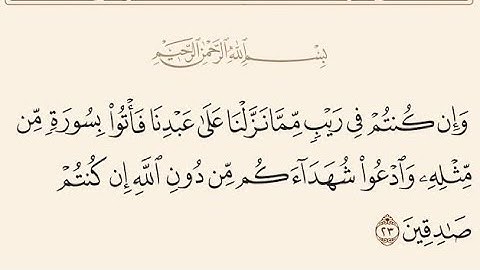 بِسْمِ ٱللَّهِ ٱلرَّحْمَٰنِ ٱلرَّحِيمِ
وَإِن كُنتُمْ فِي رَيْبٍ مِّمَّا نَزَّلْنَا عَلَىٰ عَبْدِنَا فَأْتُوا۟ بِسُورَةٍ مِّن
مِّثْلِهِۦ وَٱدْعُوا۟ شُهَدَآءَكُم مِّن دُونِ ٱللَّهِ إِن كُنتُمْ
صَٰدِقِينَ ٢٣